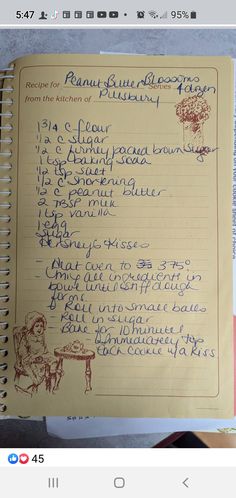 5:47
95%
Recipe for Peanut Butter Blossoms
Serves 4 dozen
from the kitchen of Pillsbury
1 3/4 c flour
1/2 c sugar
1/2 c firmly packed brown sugar
1 tsp baking soda
1/2 tsp salt
1/2 c shortening
1/2 c peanut butter
2 TBSP milk
1 tsp vanilla
1 egg
Sugar
Hershey's Kisses
- Heat oven to 375°
- Mix all ingredients in
bowl until stiff dough
forms
- Roll into small balls
- Roll in sugar
- Bake for 10 minutes
- Immediately top
each cookie w/a Kiss
45